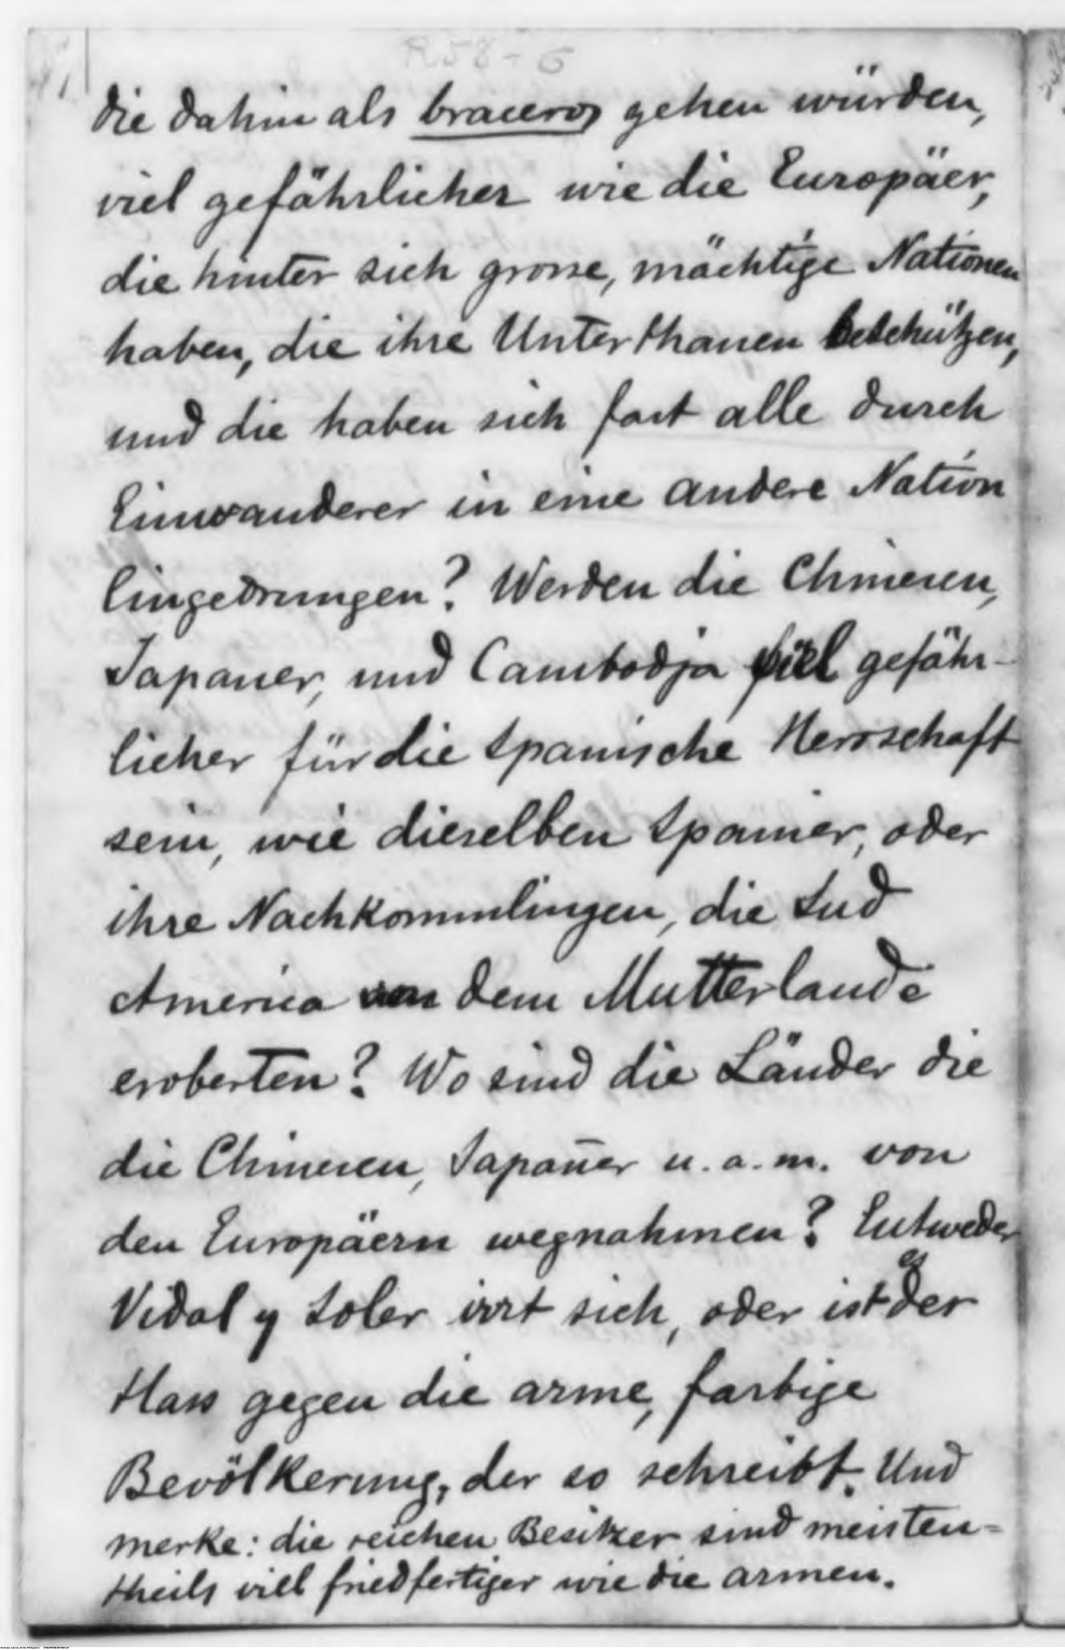 R58-6
die dahin als braceros gehen würden,
viel gefährlicher wie die Europäer,
die hinter sich grosse, mächtige Nationen
haben, die ihre Unterthanen beschützen,
und die haben sich fast alle durch
Einwanderer in eine andere Nation
eingedrungen? Werden die Chinesen,
Japaner, und Cambodja viel gefähr-
licher für die spanische Herrschaft
sein, wie dieselben Spanier, oder
ihre Nachkommlingen, die Sud
America von dem Mutterlande
eroberten? Wo sind die Länder die
die Chinesen, Japaner u. a. m. von
den Europäern wegnahmen? Entweder
Vidal y Soler irrt sich, oder ist es der
Hass gegen die arme, farbige
Bevölkerung, der so schreibt. Und
merke: die reichen Besitzer sind meisten=
theils viel friedfertiger wie die armen.